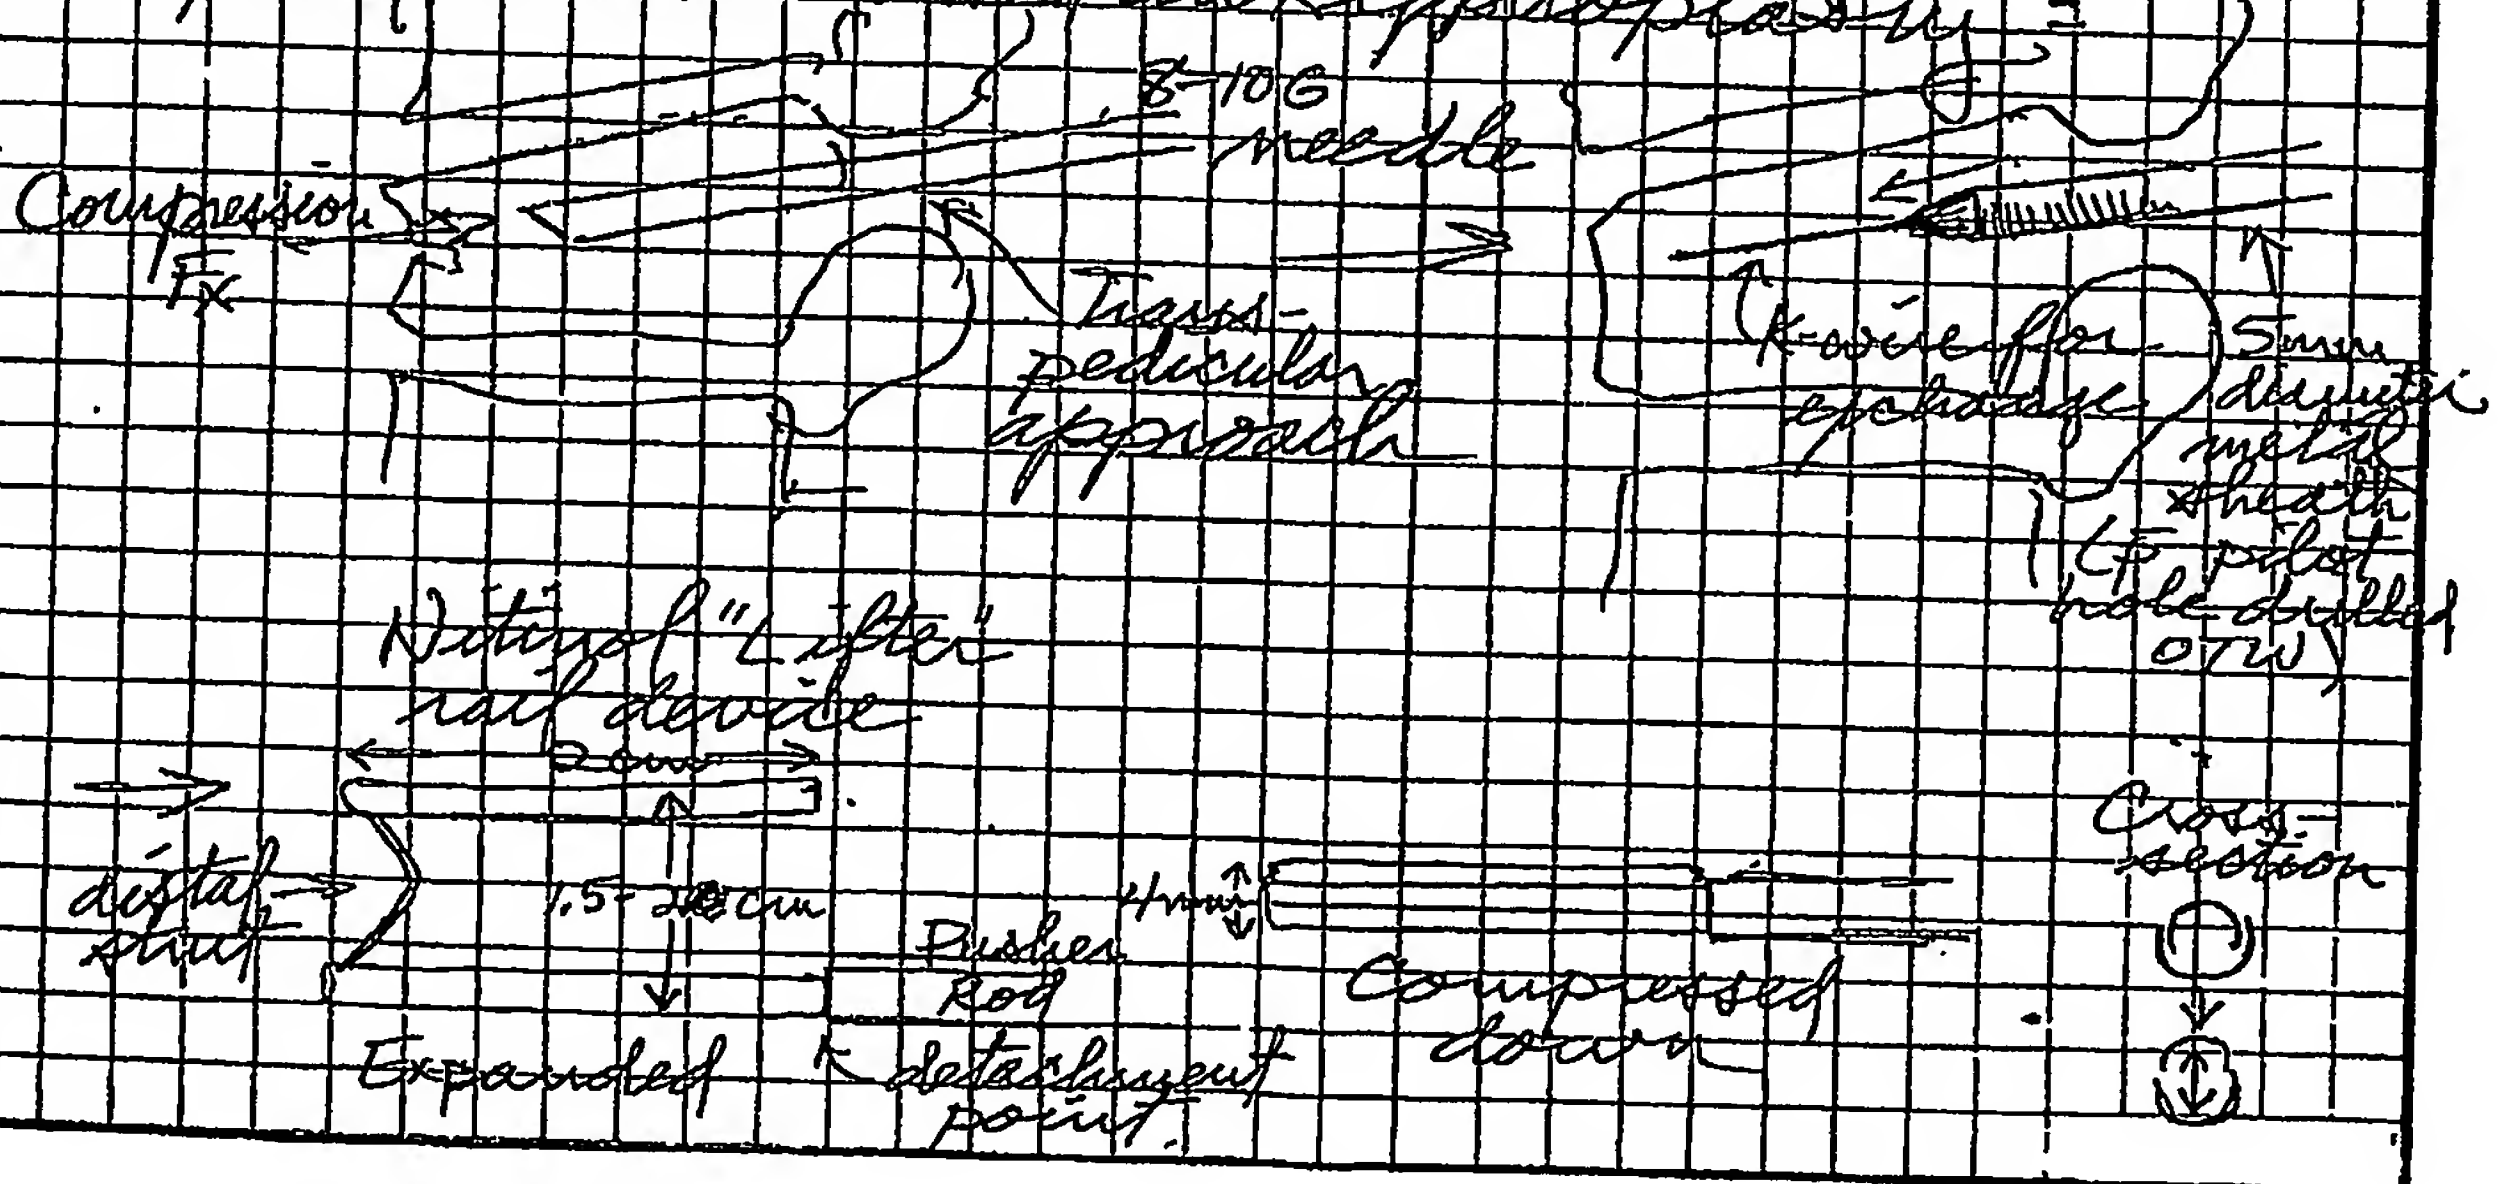 8-10G
needle
Compression
Fx
Trans-
pedicular
approach
K-wire for
exchange
5mm
diameter
metal
sheath
(p pilot
hole drilled
OTW)
Nitinol "Lifter"
rail device
2 cm
distal
strut
1.5-2.0 cm
Expanded
Pusher
Rod
detachment
point.
4mm
Compressed
down
Cross-
section